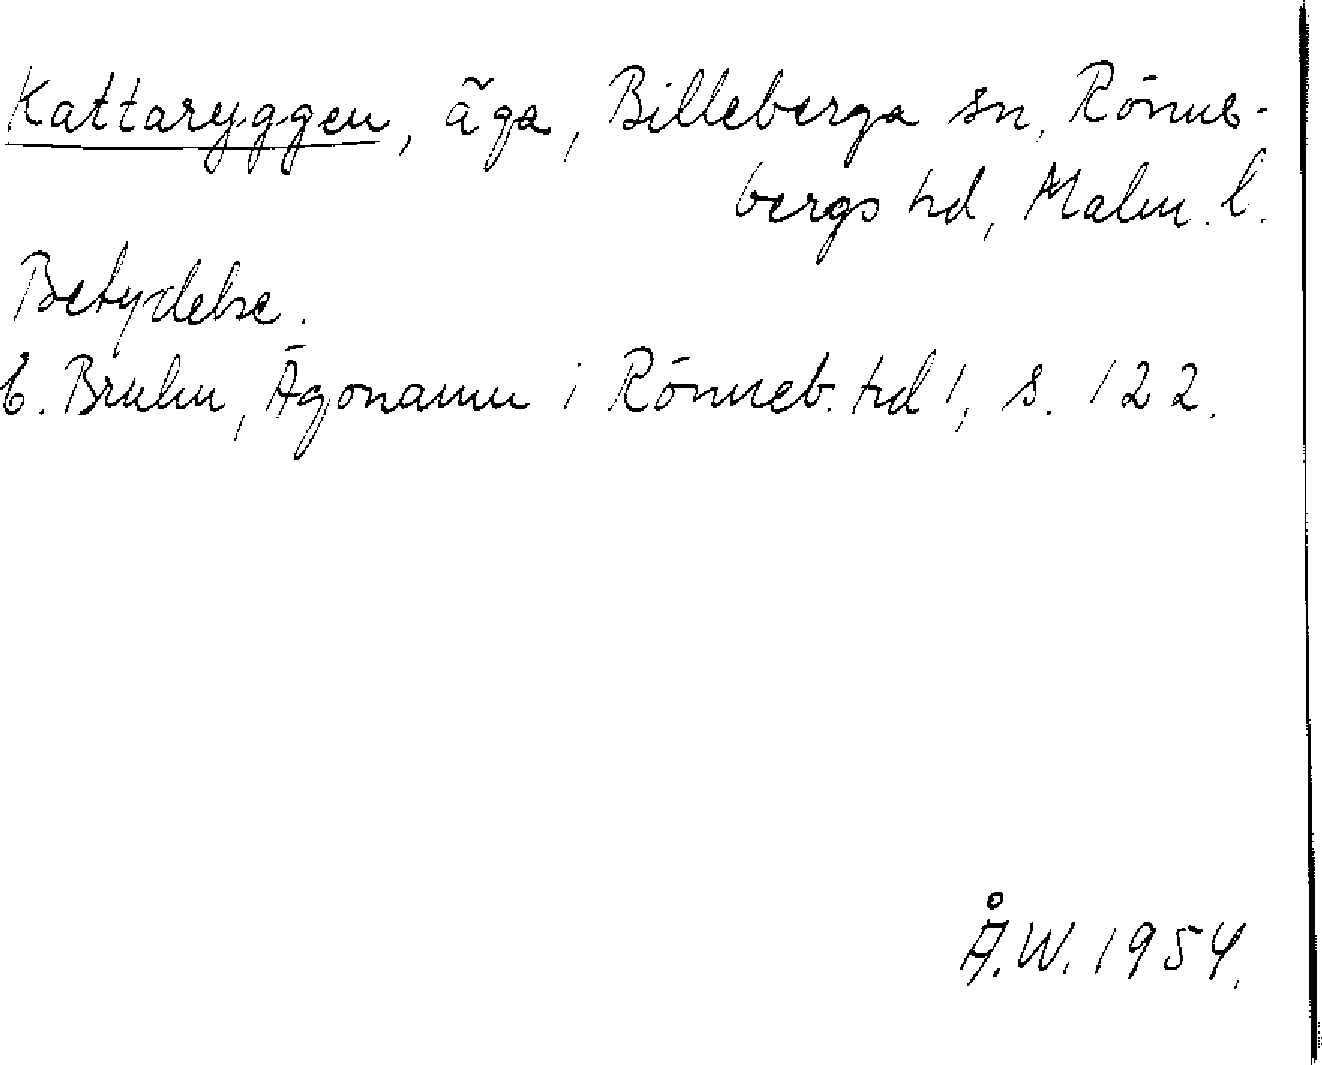 Kattaryggen, äga, Billeberga sn, Rönne-
bergs hd, Malm. l.
Betydelse.
E. Bruhn, Ägonamn i Rönneb. hd 1, s. 122.
Å.W. 1954.